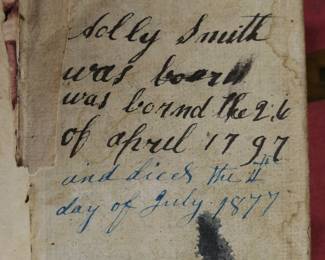 Solly Smith
was boarn
was bornd the 26
of april 1797
and died the 4
day of July 1877